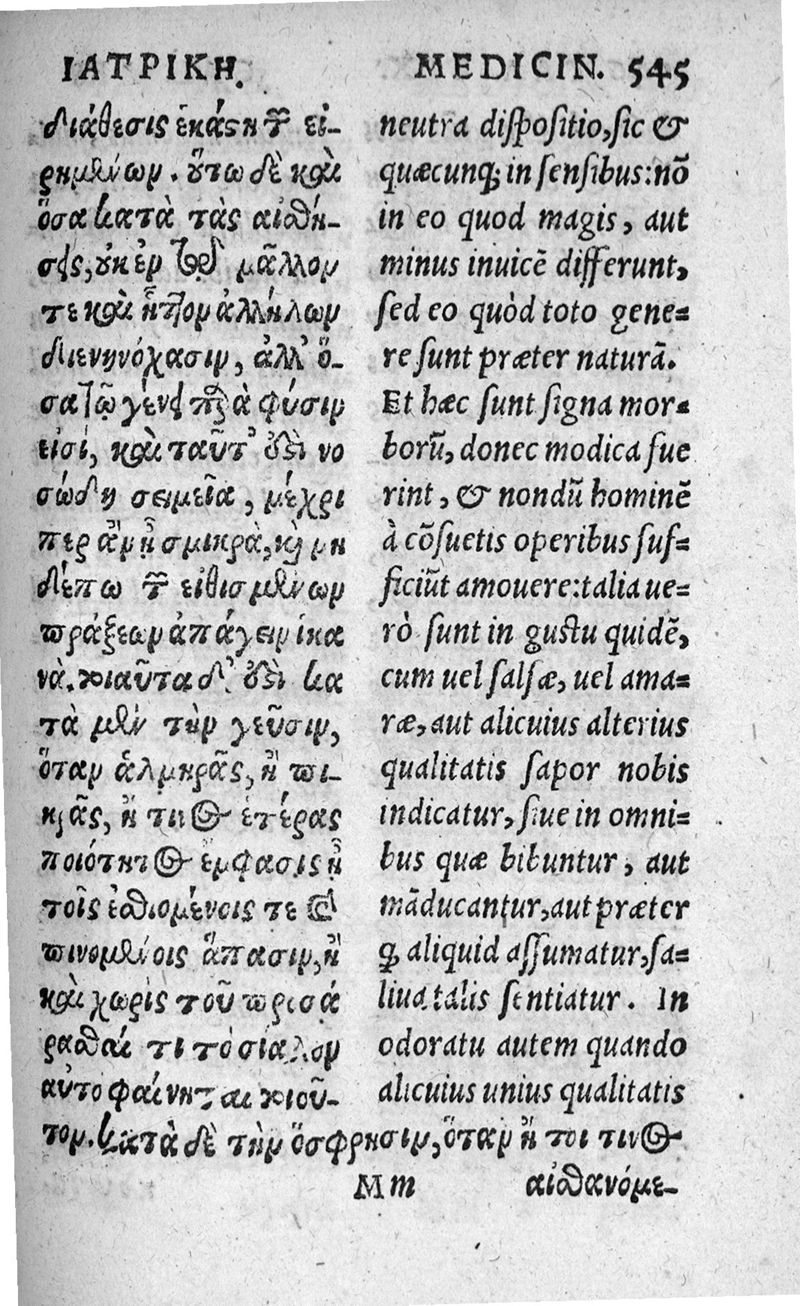 ΙΑΤΡΙΚΗ.
διάθεσις ἑκάστη τῶν εἰ-
ρημένων. οὕτω δὲ καὶ
ὅσα κατὰ τὰς αἰσθή-
σεις, οὐκ ἐν τῷ μᾶλλον
τε καὶ ἧττον ἀλλήλων
διενηνόχασιν, ἀλλ' ὅ-
σα τῷ γένει παρὰ φύσιν
εἰσί, καὶ ταῦτ' οὖν νο
σώδη σημεῖα, μέχρι
περ ἂν ᾖ σμικρὰ, καὶ μη
δέπω τῶν εἰθισμένων
πράξεων ἀπάγειν ἱκα
νά. τοιαῦτα δ' οὖν κα
τὰ μὲν τὴν γεῦσιν,
ὅταν ἁλμυρᾶς, ἢ πι-
κρᾶς, ἤ τινος ἑτέρας
ποιότητος ἔμφασις ᾖ
τοῖς ἐσθιομένοις τε καὶ
πινομένοις ἅπασιν, ἢ
καὶ χωρὶς τοῦ προσά
ρασθαί τι τὸ σίαλον
αὐτὸ φαίνηται τοιοῦ-
τον. κατὰ δὲ τὴν ὄσφρησιν, ὅταν ἤ τοι τινος
MEDICIN. 545
neutra dispositio, sic &
quæcunq; in sensibus: nō
in eo quod magis, aut
minus inuicē differunt,
sed eo quòd toto gene-
re sunt præter naturā.
Et hæc sunt signa mor-
borū, donec modica fue
rint, & nondū hominē
à cōsuetis operibus suf-
ficiūt amouere: talia ue-
rò sunt in gustu quidē,
cum uel salsæ, uel ama-
ræ, aut alicuius alterius
qualitatis sapor nobis
indicatur, siue in omni-
bus quæ bibuntur, aut
māducantur, aut præter
q̄ aliquid assumatur, sa-
liua talis sentiatur. In
odoratu autem quando
alicuius unius qualitatis
Mm
αἰσθανόμε-